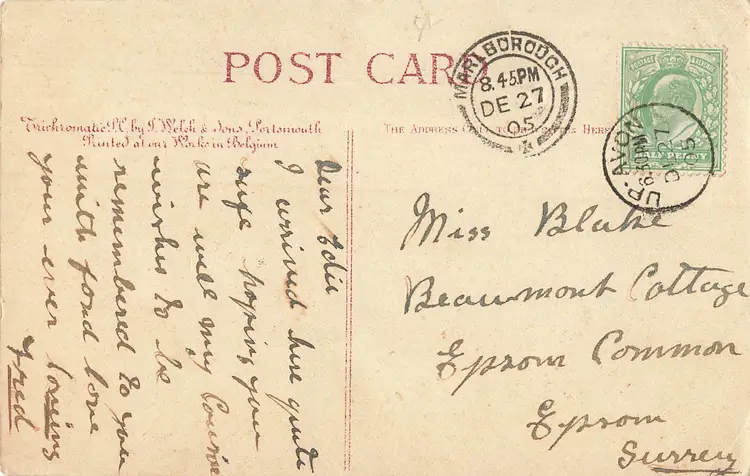 POST CARD
Trichromatic P.C. by J. Welch & Sons, Portsmouth
Printed at our Works in Belgium
THE ADDRESS ONLY TO BE HERE
MARLBOROUGH
8.45PM
DE 27
05
UP-AVON
6.30PM
DE 27
05
HALF PENNY
Dear Edie
I arrived here quite
safe hoping you
are well my Cousin
wishes to be
remembered to you
with fond love
your ever loving
Fred
Miss Blake
Beaumont Cottage
Epsom Common
Epsom
Surrey